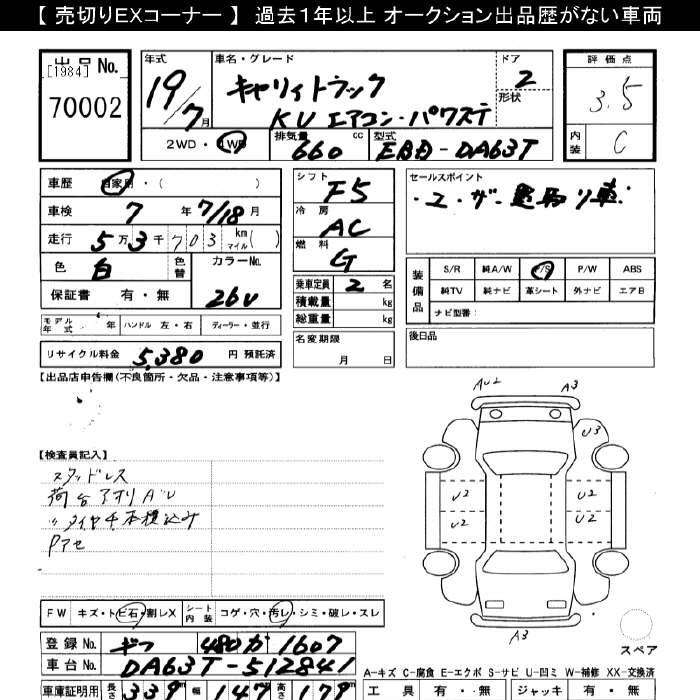 【 売切りEXコーナー 】 過去１年以上 オークション出品歴がない車両
出品 No.
[1984]
70002
年式
19/7月
車名・グレード
キャリィトラック
KU エアコン・パワステ
ドア
2
形状
評価点
3.5
内装
C
2WD・4WD
排気量
660 cc
型式
EBD-DA63T
車歴 自家用・( )
車検 7 年 7/18 月
走行 5万3千703 km マイル ( )
色 白 色替
カラーNo.
26U
保証書 有・無
モデル年式 年 ハンドル 左・右 ディーラー・並行
リサイクル料金 5,380 円 預託済
シフト
F5
冷房
AC
燃料
G
乗車定員 2 名
積載量 kg
総重量 kg
名変期限
月 日
セールスポイント
・ユーザー買取り車
装備品
S/R 純A/W P/S P/W ABS
純TV 純ナビ 革シート 外ナビ エアB
ナビ型番：
後日品
【出品店申告欄(不良箇所・欠品・注意事項等)】
【検査員記入】
スタッドレス
荷台アオリAU
〃タイヤ4本積込み
Pアセ
AU2
A3
U3
U2
U2
U2
U2
A3
スペア
FW キズ・トビ石・割レX シート内装 コゲ・穴・汚レ・シミ・破レ・スレ
登録 No. ギフ 480 か 1607
車台 No. DA63T-512841
車庫証明用 長さ 339 幅 147 高さ 179
A-キズ C-腐食 E-エクボ S-サビ U-凹ミ W-補修 XX-交換済
工具 有・無 ジャッキ 有・無